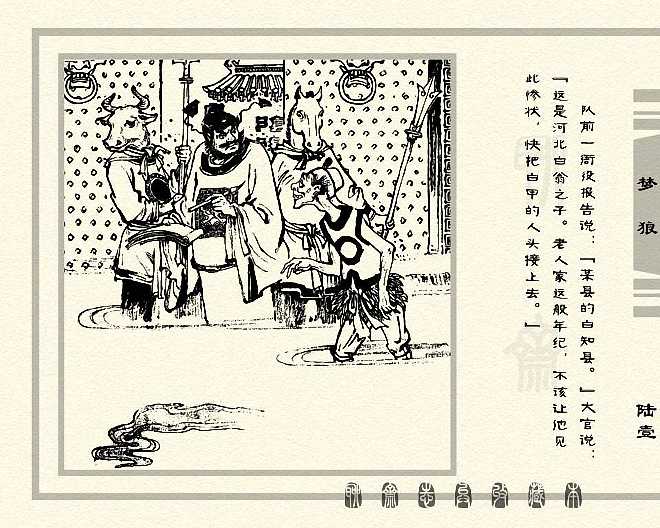 队前一衙役报告说：「某县的白知县。」大官说：
「这是河北白翁之子。老人家这般年纪，不该让他见
此惨状，快把白甲的人头接上去。」
梦狼
陆壹
聊斋志异收藏本